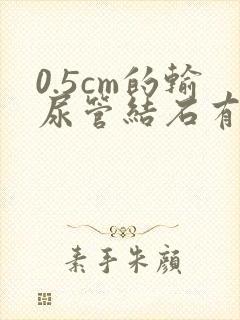 0.5cm的輸
尿管結石有
素手朱顔